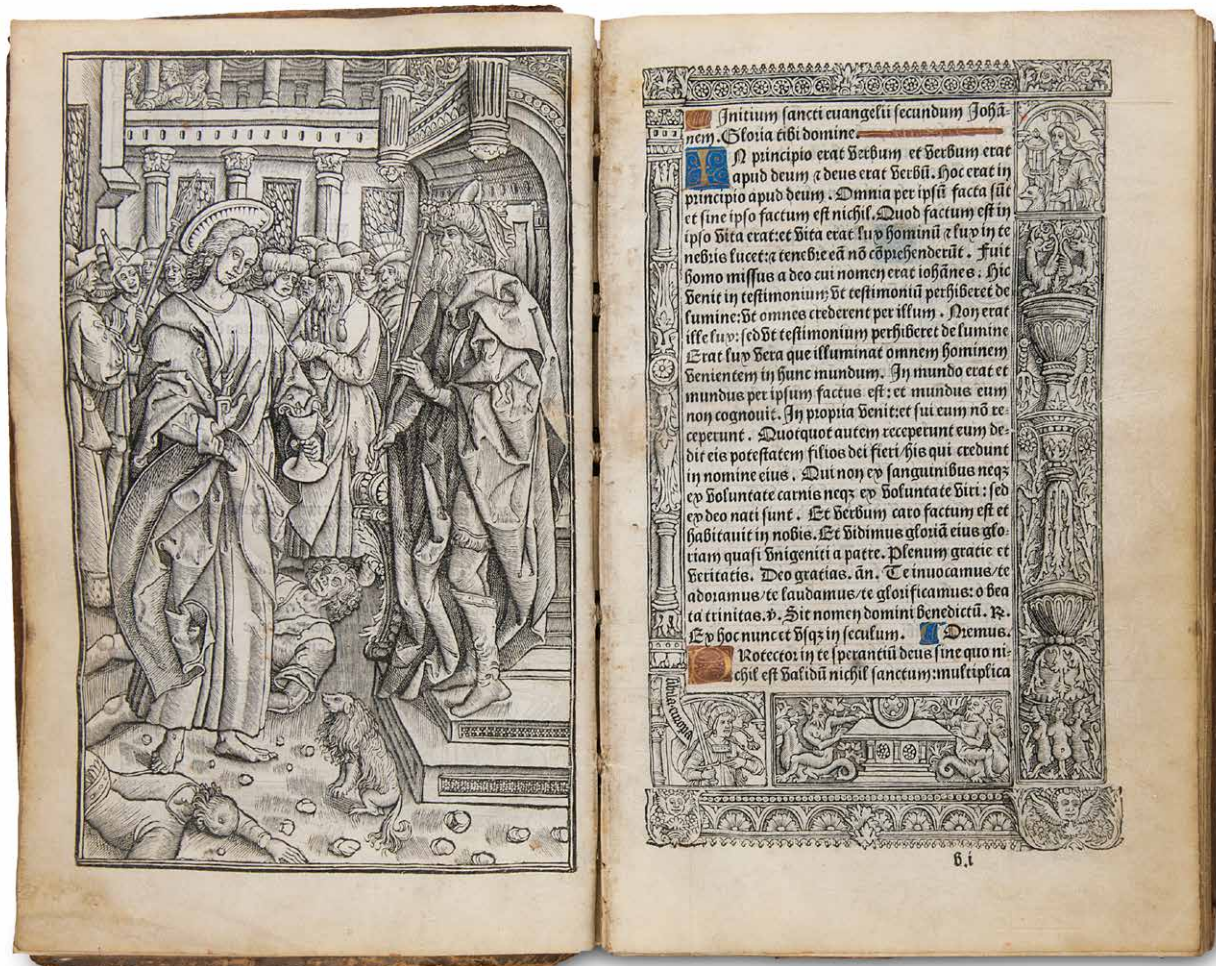 Initium sancti euangelii secundum Johā-
nem. Gloria tibi domine.
IN principio erat verbum et verbum erat
apud deum ⁊ deus erat verbū. Hoc erat in
principio apud deum. Omnia per ipsū facta sūt
et sine ipso factum est nichil. Quod factum est in
ipso vita erat: et vita erat lux hominū ⁊ lux in te
nebris lucet: ⁊ tenebre eā nō cōprehenderūt. Fuit
homo missus a deo cui nomen erat iohānes. Hic
venit in testimonium: vt testimoniū perhiberet de
lumine: vt omnes crederent per illum. Non erat
ille lux: sed vt testimonium perhiberet de lumine
Erat lux vera que illuminat omnem hominem
venientem in hunc mundum. In mundo erat et
mundus per ipsum factus est: et mundus eum
non cognouit. In propria venit: et sui eum nō re-
ceperunt. Quotquot autem receperunt eum de-
dit eis potestatem filios dei fieri/his qui credunt
in nomine eius. Qui non ex sanguinibus neqȝ
ex voluntate carnis neqȝ ex voluntate viri: sed
ex deo nati sunt. Et verbum caro factum est et
habitauit in nobis. Et vidimus gloriā eius glo-
riam quasi vnigeniti a patre. Plenum gratie et
veritatis. Deo gratias. ān. Te inuocamus/te
adoramus/te laudamus/te glorificamus: o bea
ta trinitas. v. Sit nomen domini benedictū. R.
Ex hoc nunc et vsqȝ in seculum. Oremus.
PRotector in te sperantiū deus sine quo ni-
chil est validū nichil sanctum: multiplica
v.i